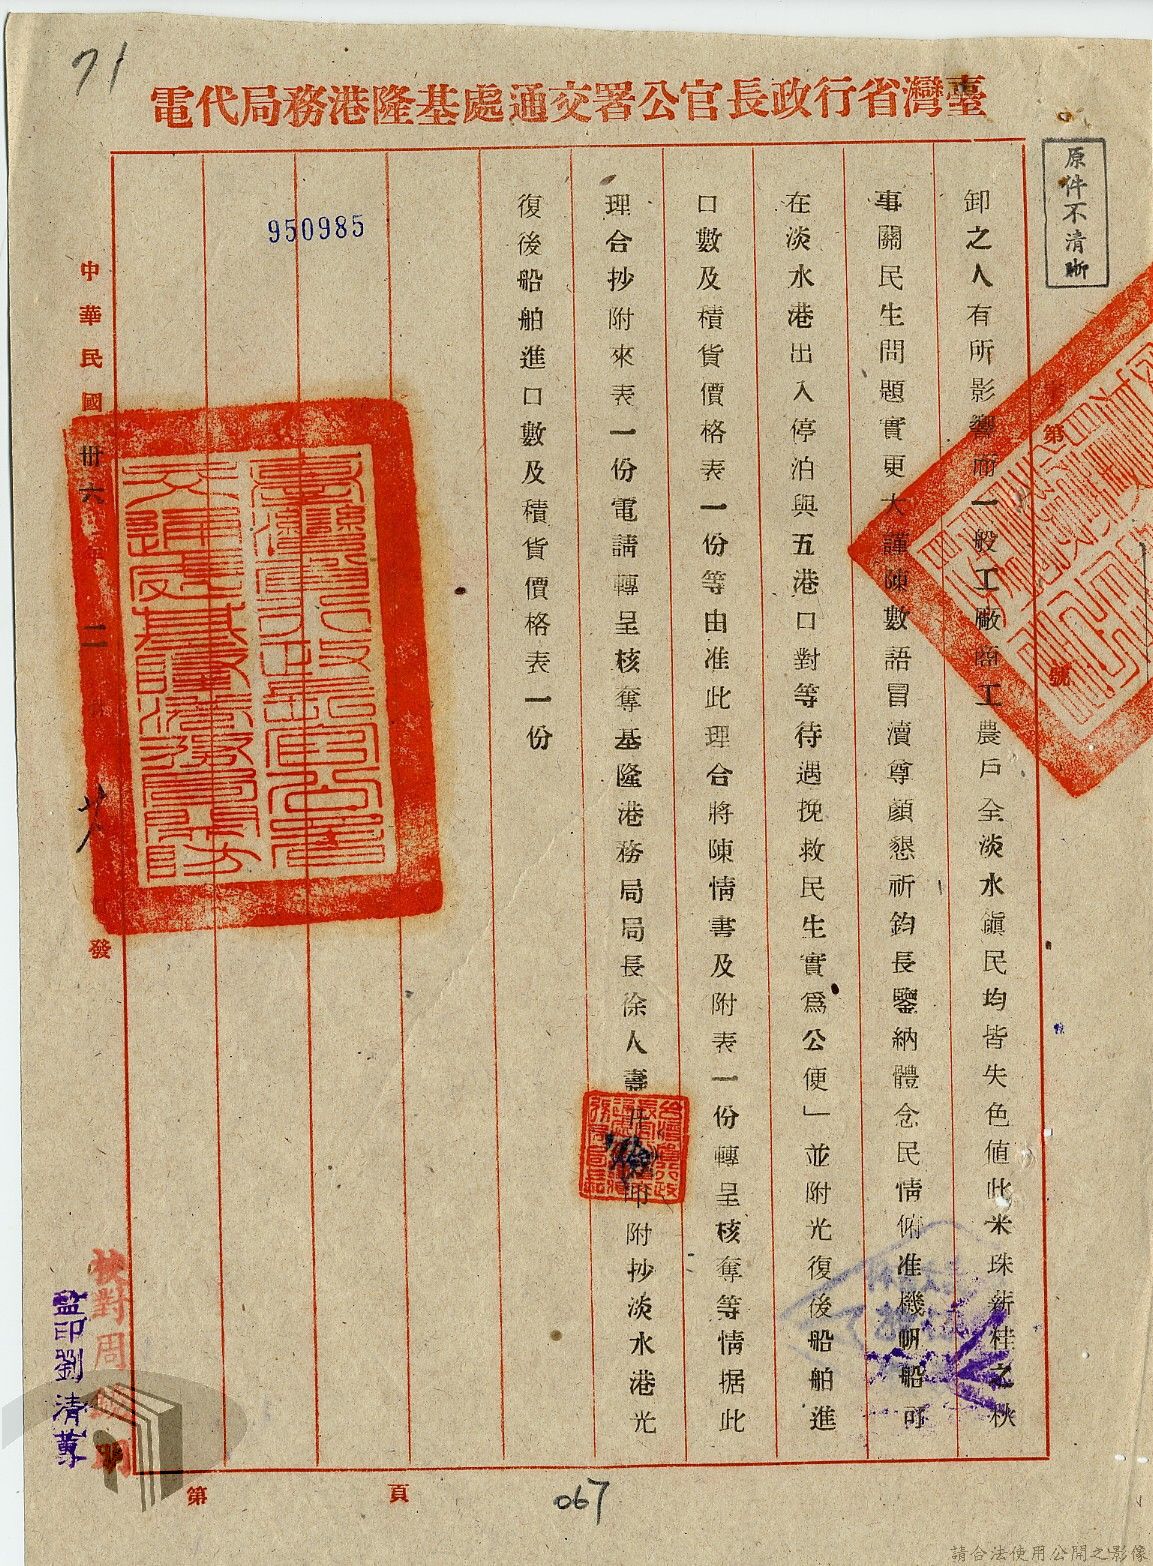 71
臺灣省行政長官公署交通處基隆港務局代電
原件不清晰
第
號
卸之人有所影響而一般工廠商工農戶全淡水鎭民均皆失色値此米珠薪桂之秋
事關民生問題實更大謹陳數語冒瀆尊顏懇祈鈞長鑒納體念民情俯准機帆船可
在淡水港出入停泊與五港口對等待遇挽救民生實爲公便」並附光復後船舶進
口數及積貨價格表一份等由准此理合將陳情書及附表一份轉呈核奪等情据此
理合抄附來表一份電請轉呈核奪基隆港務局局長徐人壽 叩附抄淡水港光
復後船舶進口數及積貨價格表一份
950985
臺灣省行政長官公署交通處基隆港務局關防
中華民國卅六年二 發
校對周
監印劉清
第 頁
067
請合法使用公開之影像